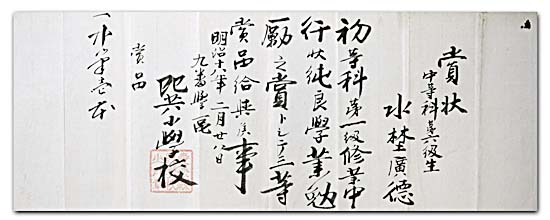 賞状
中等科第六級生
水埜廣徳
初等科第一級修業中
行状純良學業勉
励之賞トシテ三等
賞品給與候事
明治十八年二月廿八日
巽小學校
賞品
一水筆壱本